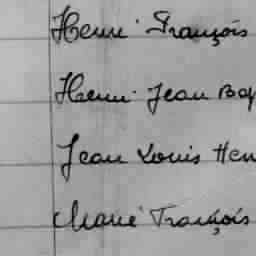 Henri François
Henri Jean Bap
Jean Louis Hen
Marie François